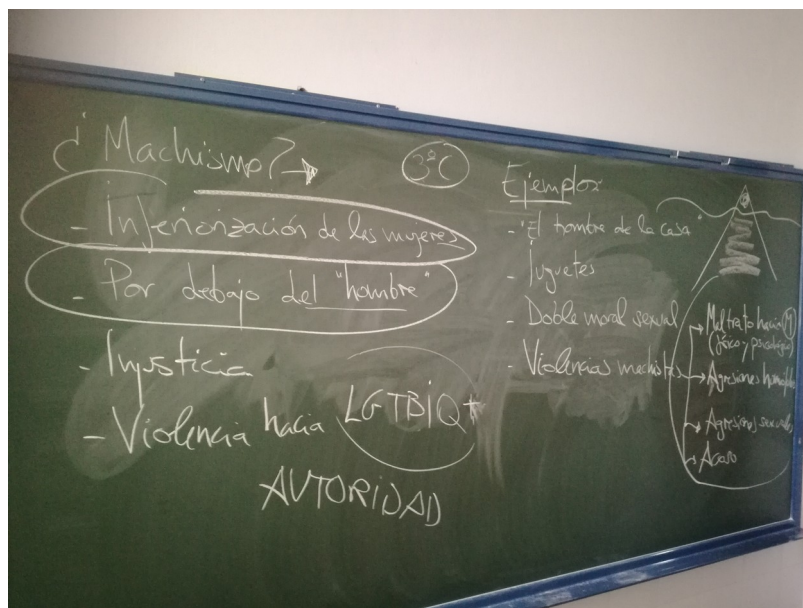 ¿Machismo? →
3ºC
- Inferiorización de las mujeres
- Por debajo del "hombre"
- Injusticia
- Violencia hacia LGTBIQ+
AUTORIDAD
Ejemplos
- "El hombre de la casa"
- Juguetes
- Doble moral sexual
- Violencias machistas
→ Maltrato hacia M
(físico y psicológico)
→ Agresiones homófobas
→ Agresiones sexuales
→ Acoso